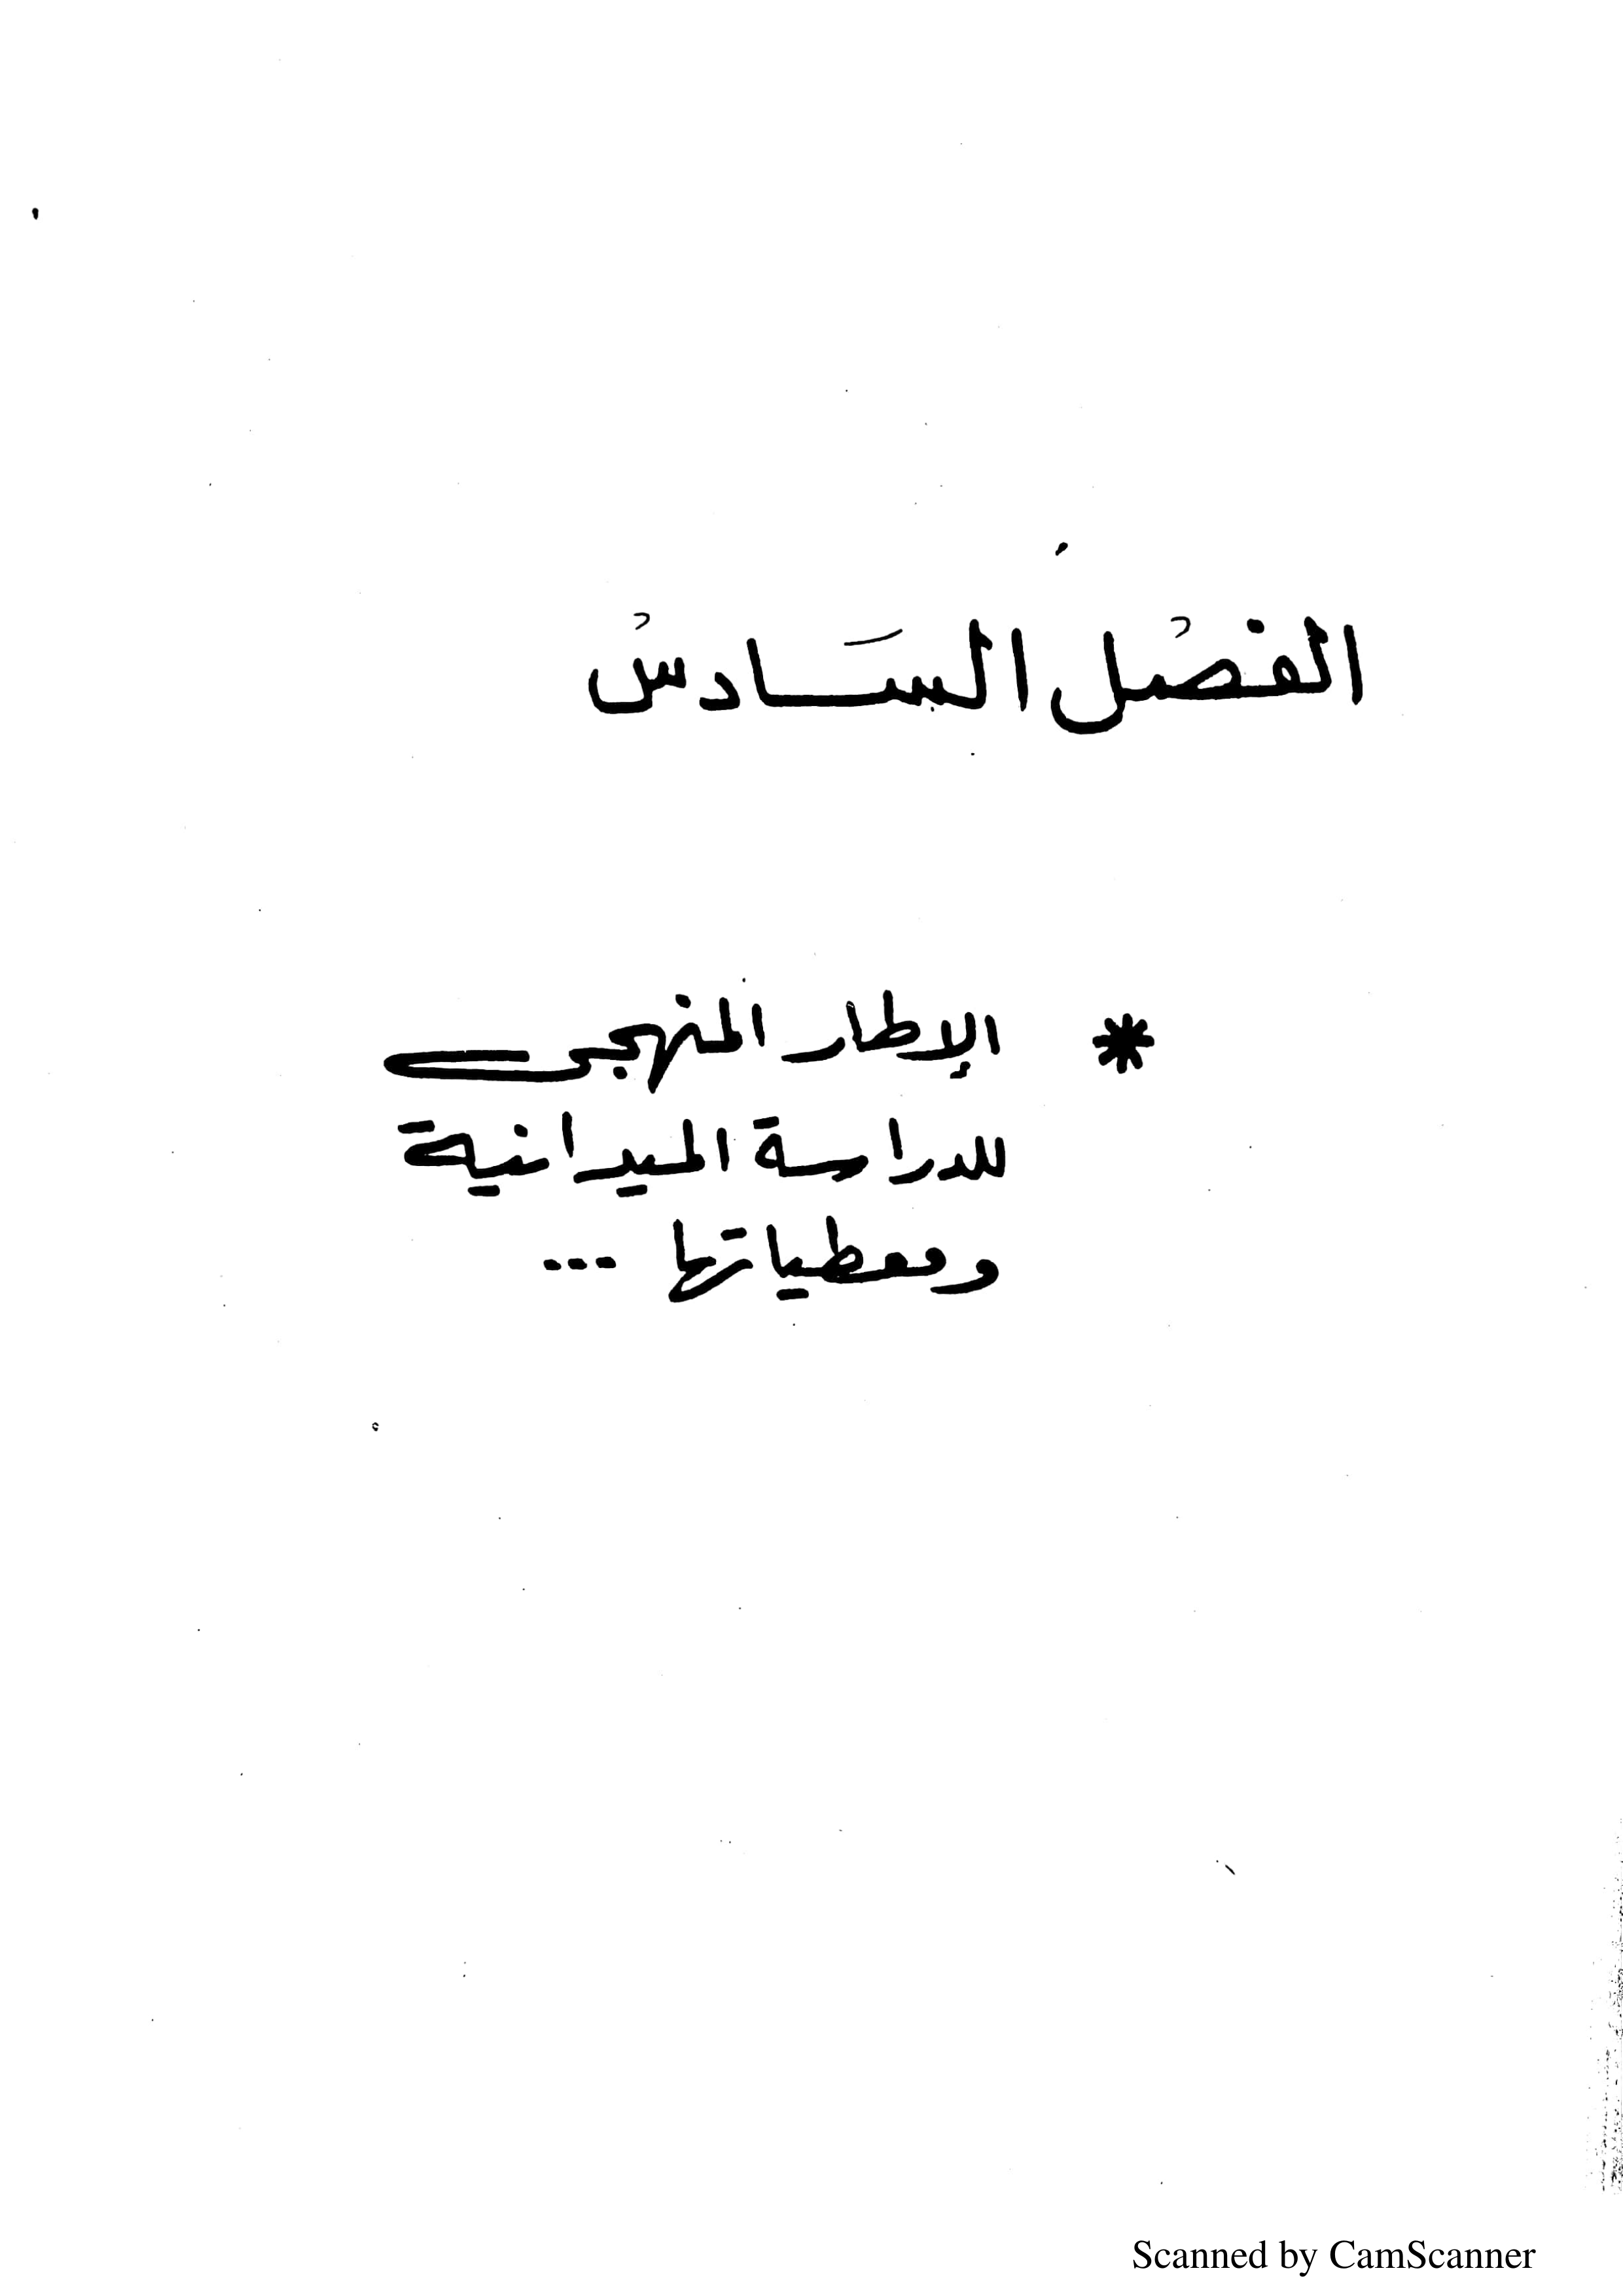 الفصل السادس
* الإطار المنهجي
للدراسة الميدانية
ومعطياتها ...
Scanned by CamScanner